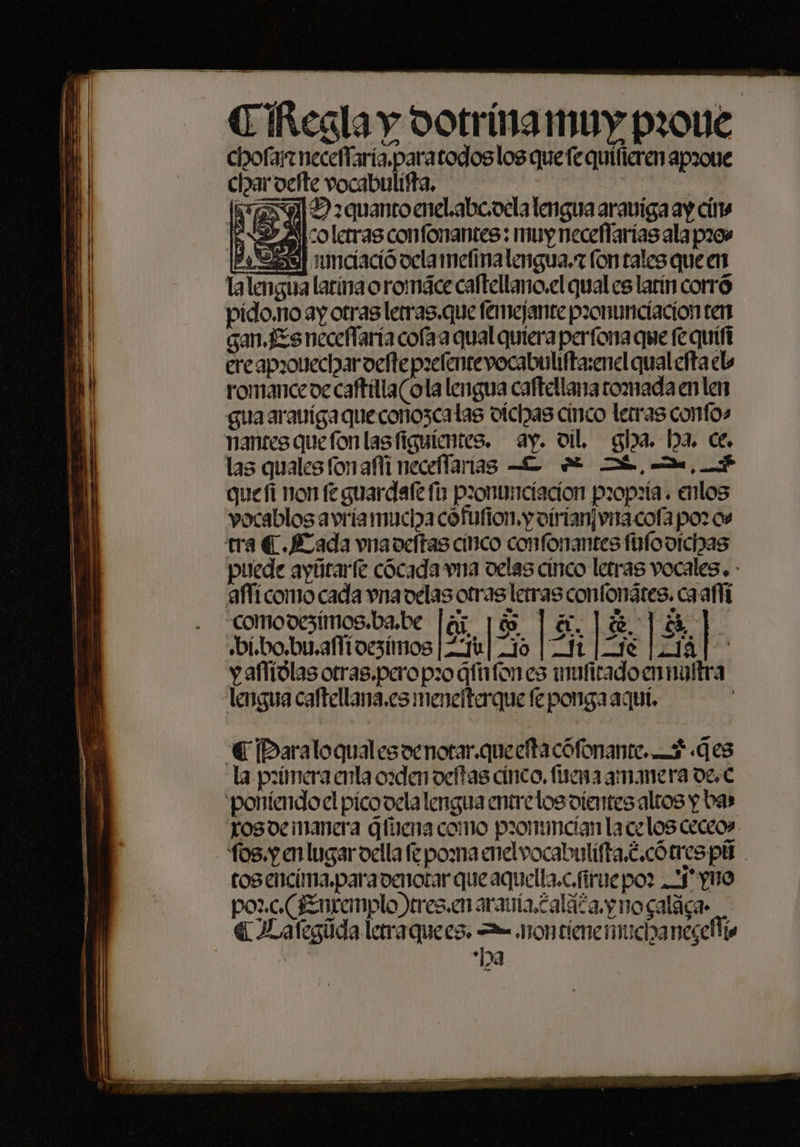 ¶ Regla y dotrina muy proue
chosa ⁊ necessaria.para todos los que se quisieren aproue
char deste vocabulista.
POr quanto enel.abc.dela lengua arauiga ay cin-
co letras consonantes : muy necessarias ala pro-
nunciaciō dela mesma lengua.⁊ son tales que en
la lengua latina o romāce castellano.el qual es latin corrō
pido.no ay otras letras.que semejante pronunciacion ten
gan.Es necessaria cosa a qual quiera persona que se quisi
ere aprouechar deste presente vocabulista:enel qual esta el-
romance de castilla(o la lengua castellana tornada en len
gua arauiga que conozca las dichas cinco letras conso-
nantes que son las siguientes. ay. dil. gha. ha. ce.
las quales son assi necessarias
que si non se guardase su pronunciacion propria. enlos
vocablos avria mucha cōfusion.y dirian vna cosa por o-
tra ¶.Cada vna destas cinco consonantes suso dichas
puede ayūtarse cōcada vna delas cinco letras vocales.
assi como cada vna delas otras letras consonātes. ca assi
como dezimos.ba.be
.bi.bo.bu.assi dezimos
y assi dlas otras.pero pro q̄ su son es inusitado en nuestra
lengua castellana.es menester que se ponga aqui.
¶ Para lo qual es de notar.que esta cōsonante. ث .q̄ es
la primera enla orden destas cinco, suena a manera de.c
poniendo el pico dela lengua entre los dientes altos y ba-
xos de manera q̄ suena como pronuncian la ce los ceceo-
sos.y en lugar della se porna enel vocabulista.c.cō tres pū
tos encima.para denotar que aquella.c.sirue por ث y no
por.c.(Enxemplo)tres.en arauia.calāca.y no çalāça.
¶ La segūda letra que es. ح .non tiene mucha necessi-
ha